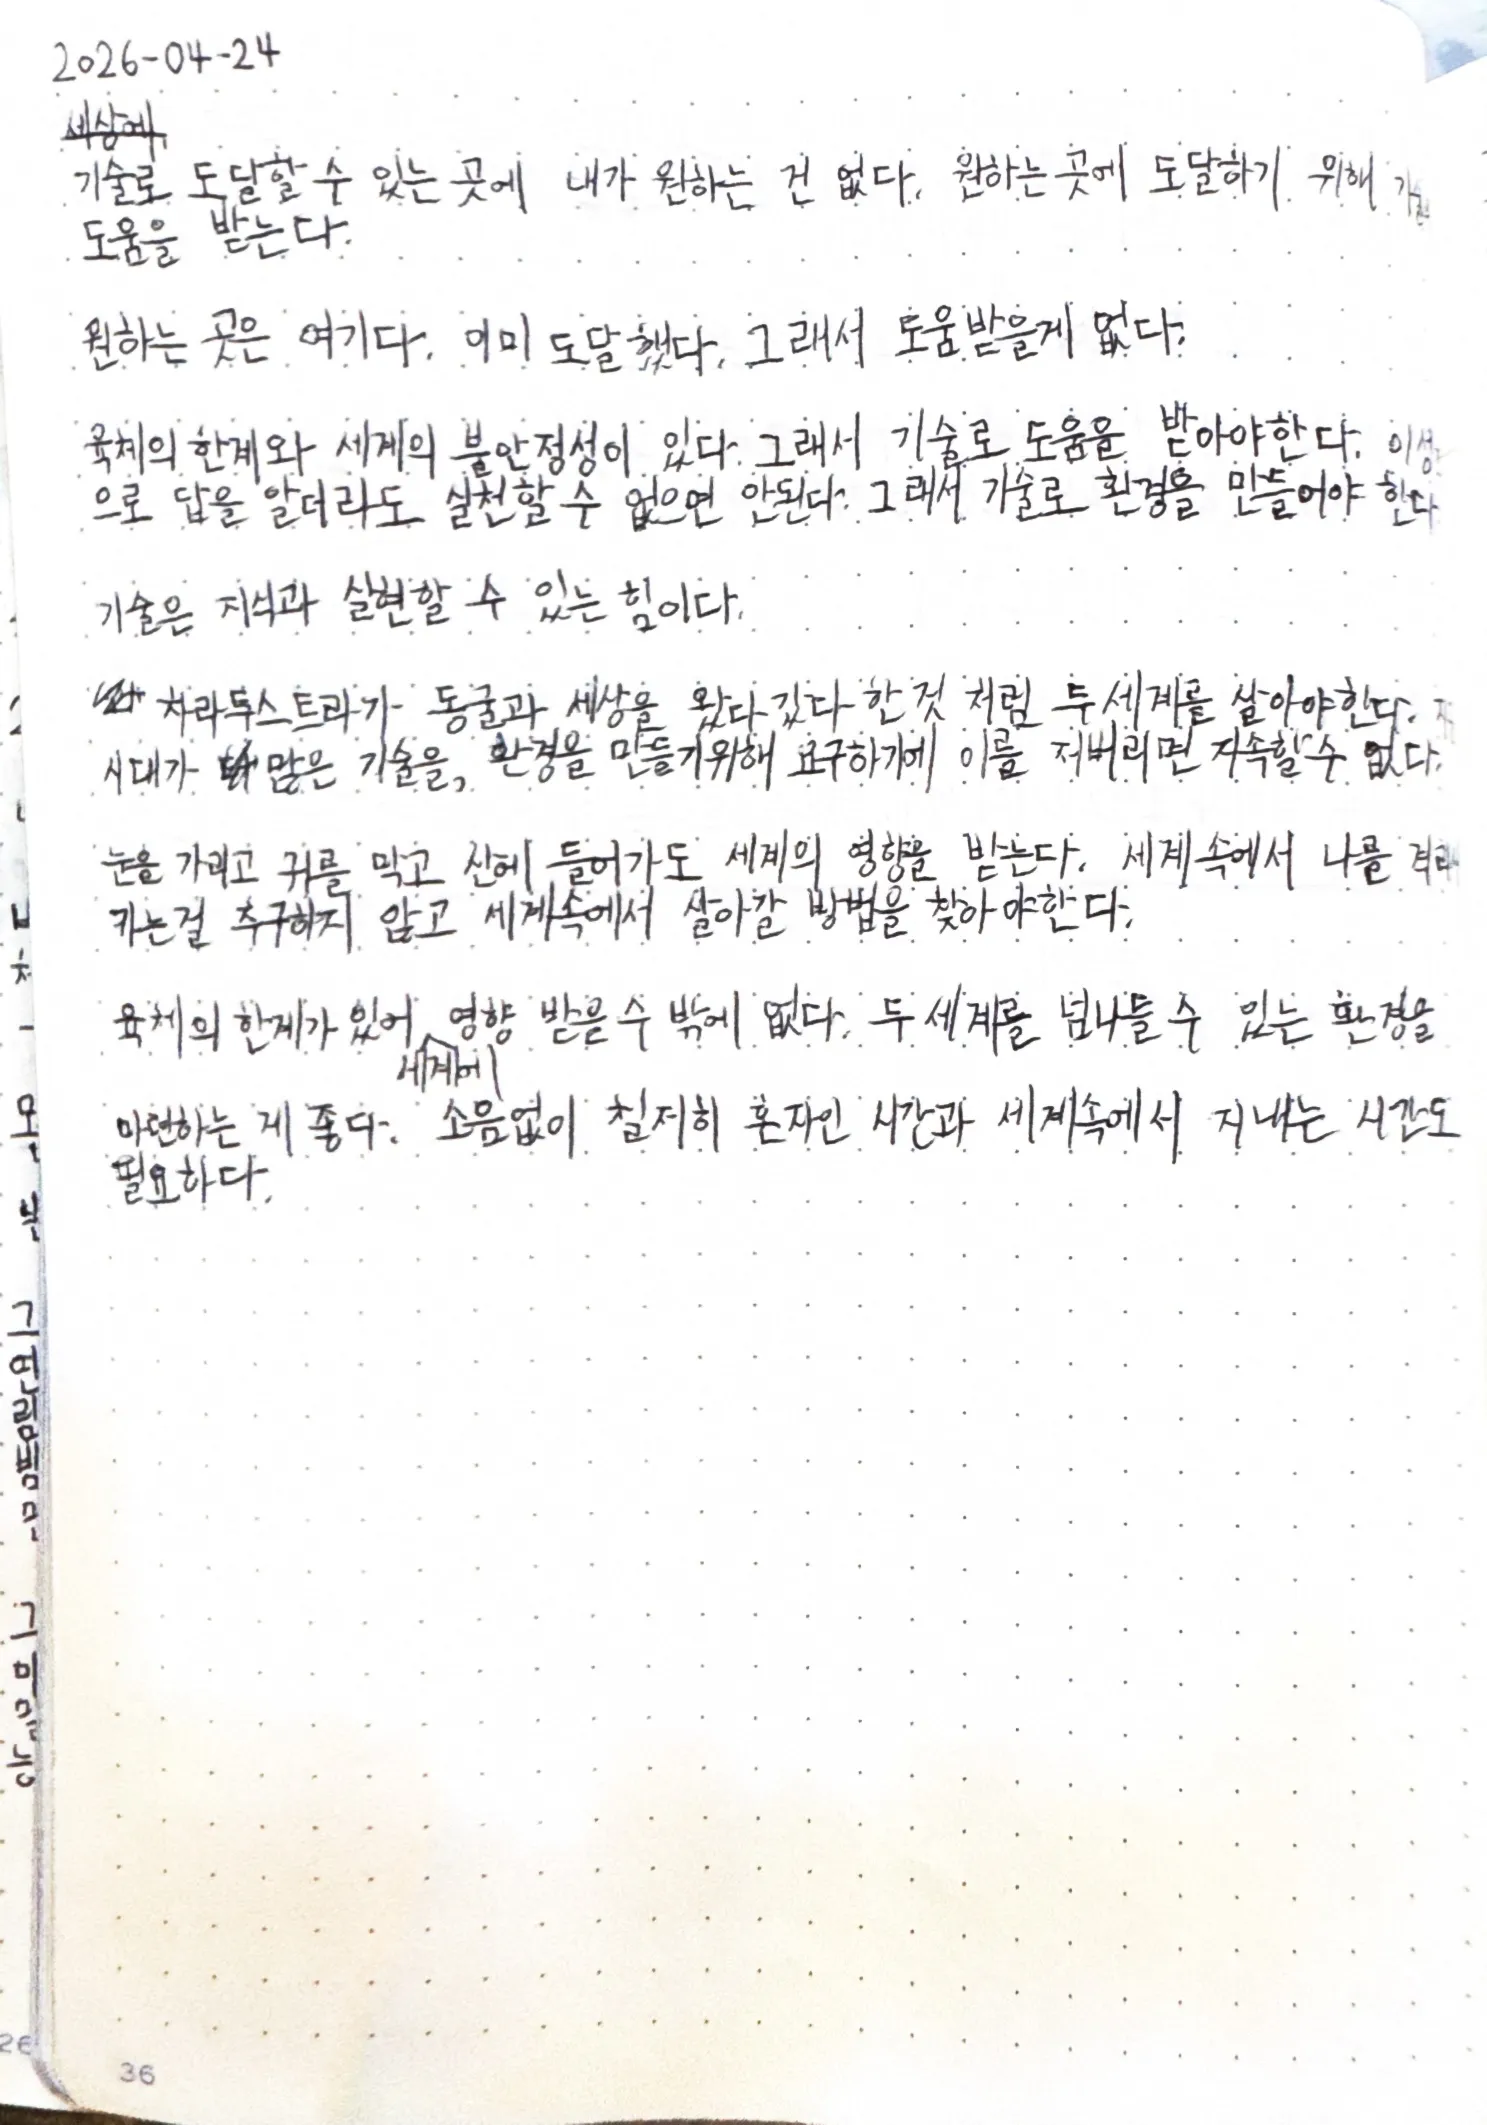 2026-04-24
세상에,
기술로 도달할 수 있는 곳에 내가 원하는 건 없다. 원하는 곳에 도달하기 위해
도움을 받는다.
원하는 곳은 여기다. 이미 도달했다. 그래서 도움받을게 없다.
육체의 한계와 세계의 불안정성이 있다. 그래서 기술로 도움을 받아야한다. 이성
으로 답을 알더라도 실천할 수 없으면 안된다. 그래서 기술로 환경을 만들어야 한다
기술은 지식과 실현할 수 있는 힘이다.
차라투스트라가 동굴과 세상을 왔다 갔다 한것 처럼 두 세계를 살아야한다.
시대가 많은 기술을, 환경을 만들기위해 요구하기에 이를 저버리면 지속할 수 없다.
눈을 가리고 귀를 막고 산에 들어가도 세계의 영향을 받는다. 세계속에서 나를 격리
카는걸 추구하지 않고 세계속에서 살아갈 방법을 찾아야한다.
육체의 한계가 있어 영향 받을 수 밖에 없다. 두 세계를 넘나들 수 있는 환경을
세계에
마련하는 게 좋다. 소음없이 철저히 혼자인 시간과 세계속에서 지내는 시간도
필요하다.
36